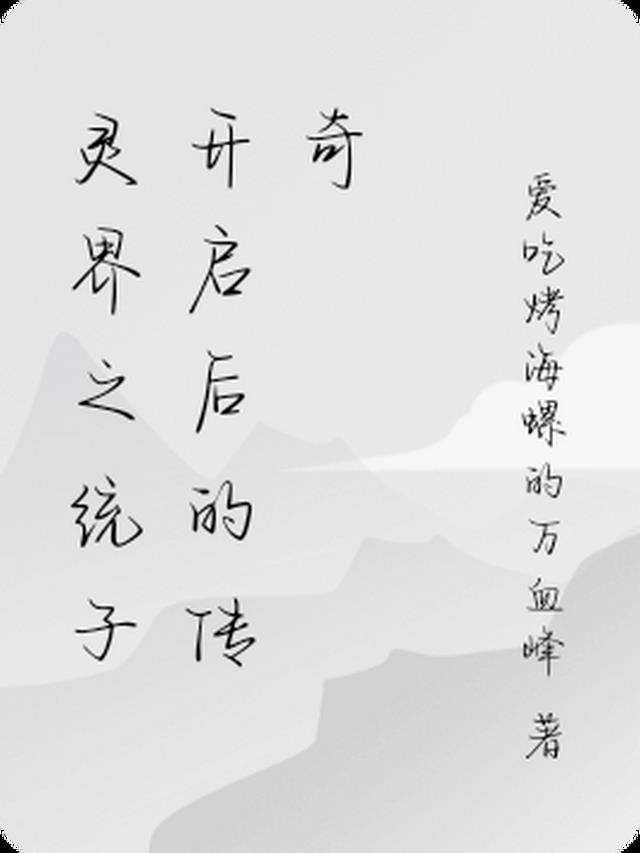 灵界之统子
开启后的传
奇
爱吃烤海螺的万血峰 著